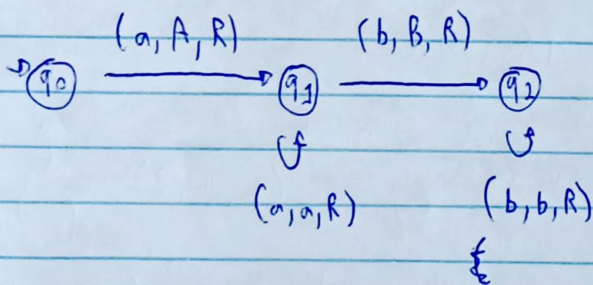 (a, A, R) (b, B, R)
q0 q1 q2
(a, a, R) (b, b, R)